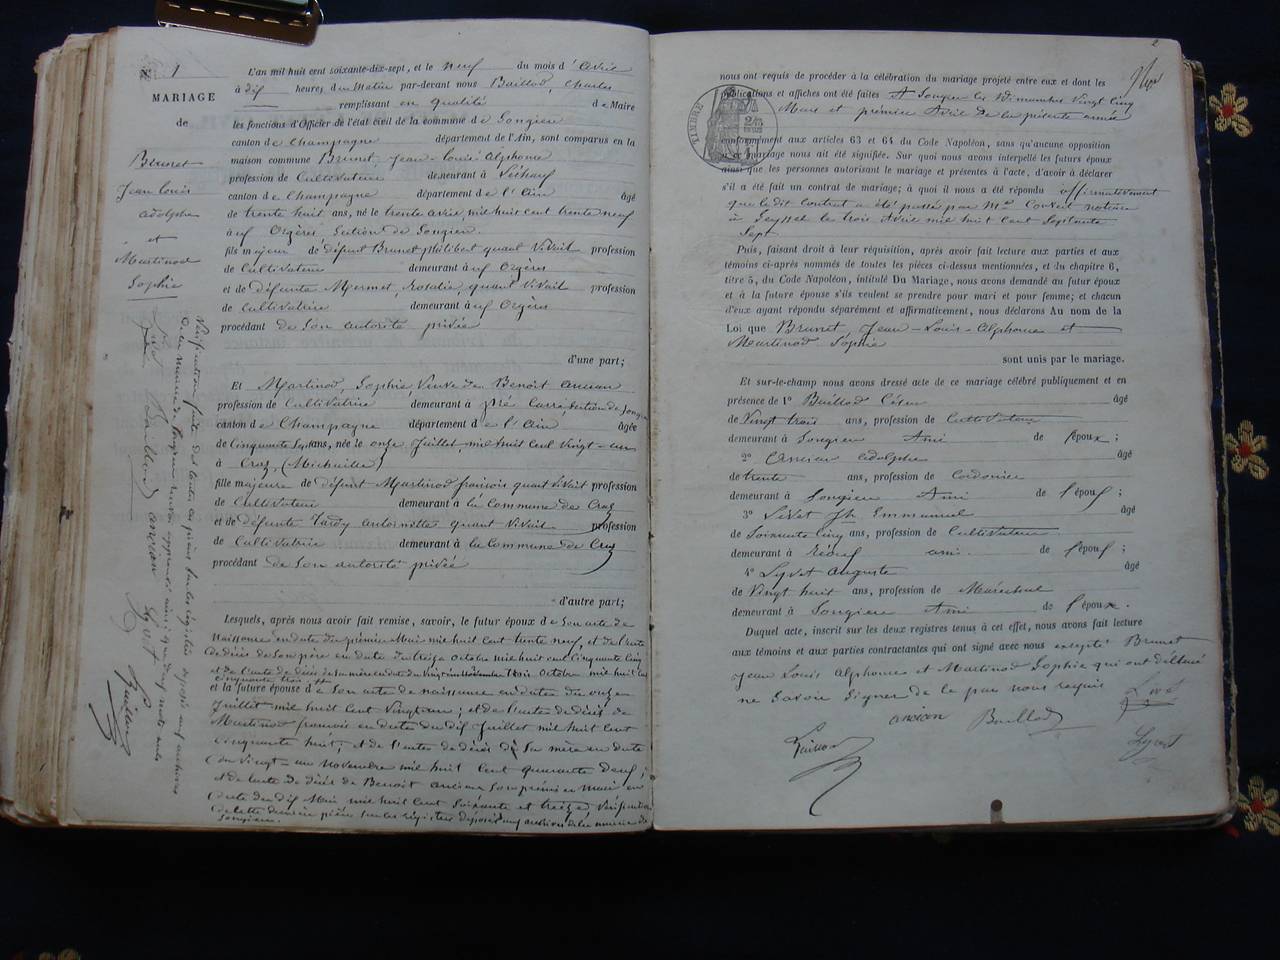 N° 1
MARIAGE
de
Brunet
Jean Louis
adolphe
et
Martinod
Sophie
L'an mil huit cent soixante-dix-sept, et le neuf du mois d'avril
à dix heures du Matin par-devant nous Baillod, Charles
remplissant en qualité de Maire
les fonctions d'Officier de l'état civil de la commune de Songieu
canton de Champagne département de l'Ain, sont comparus en la
maison commune Brunet, Jean-Louis Alphonse
profession de Cultivateur demeurant à
canton de Champagne département de l'ain âgé
de trente huit ans, né le trente avril mil huit cent trente neuf
à Orgères Section de Songieu
fils majeur de défunt Brunet philibert quand Vivait profession
de Cultivateur demeurant à Orgères
et de défunte Mermet, Rosalie, quand Vivait profession
de Cultivatrice demeurant à Orgères
procédant de Son autorité privée
d'une part;
Et Martinod, Sophie, Veuve de Benoit ancian
profession de Cultivatrice demeurant à pré Carré Section de Songieu
canton de Champagne département de l'ain âgée
de Cinquante Six ans, née le onze Juillet, mil huit cent Vingt-un
à Craz, (Michaille)
fille majeure de défunt Martinod françois quand Vivait profession
de Cultivateur demeurant à la Commune de Craz
et de défunte Tardy antoinette quand Vivait profession
de Cultivatrice demeurant à la Commune de Craz
procédant de Son autorité privée
d'autre part;
Lesquels, après nous avoir fait remise, savoir, le futur époux de Son acte de
Naissance en date du premier Mai mil huit cent trente neuf, et de l'acte
de décès de Son père en date du treize octobre mil huit cent Cinquante Cinq
et de l'acte de décès de sa mère en date du Vingt un Novembre
cinquante trois
et la future épouse de Son acte de naissance en date du onze
Juillet mil huit cent Vingt un; et de l'acte de décès de
Martinod françois en date du dix Juillet mil huit cent
Cinquante huit; et de l'actes de décès de Sa mère en date
du Vingt-un Novembre mil huit cent quarante Neuf;
et de l'acte de décès de Benoit ancian Son premier mari en
date du dix Mai mil huit cent Soixante et treize Vérification
de cette dernière pièce sur les registres déposés aux archives de la mairie de
Songieu.
2
nous ont requis de procéder à la célébration du mariage projeté entre eux et dont les
publications et affiches ont été faites A Songieu les Dimanches Vingt Cinq
Mars et premier Avril de la présente année
TIMBRE
conformément aux articles 63 et 64 du Code Napoléon, sans qu'aucune opposition
à ce mariage nous ait été signifiée. Sur quoi nous avons interpellé les futurs époux
ainsi que les personnes autorisant le mariage et présentes à l'acte, d'avoir à déclarer
s'il a été fait un contrat de mariage; à quoi il nous a été répondu affirmativement
que le dit contrat a été passé par Me notaire
à Seyssel le trois Avril mil huit Cent Septante
Sept
Puis, faisant droit à leur réquisition, après avoir fait lecture aux parties et aux
témoins ci-après nommés de toutes les pièces ci-dessus mentionnées, et du chapitre 6,
titre 5, du Code Napoléon, intitulé Du Mariage, nous avons demandé au futur époux
et à la future épouse s'ils veulent se prendre pour mari et pour femme; et chacun
d'eux ayant répondu séparément et affirmativement, nous déclarons Au nom de la
Loi que Brunet, Jean-Louis-Alphonse et
Martinod Sophie
sont unis par le mariage.
Et sur-le-champ nous avons dressé acte de ce mariage célébré publiquement et en
présence de 1° Baillod César âgé
de Vingt trois ans, profession de Cultivateur
demeurant à Songieu Ami de l'époux;
2° Ancian Adolphe âgé
de trente ans, profession de Cordonier
demeurant à Songieu Ami de l'époux;
3° Livet Jh Emmanuel âgé
de Soixante Cinq ans, profession de Cultivateur
demeurant à ami de l'époux;
4° Lyvet Auguste âgé
de Vingt huit ans, profession de Maréchal
demeurant à Songieu Ami de l'époux.
Duquel acte, inscrit sur les deux registres tenus à cet effet, nous avons fait lecture
aux témoins et aux parties contractantes qui ont signé avec nous excepté Brunet
Jean Louis Alphonse et Martinod Sophie qui ont déclaré
ne Savoir Signer de le par nous requis
Livet
ancian Baillod
Lyvet